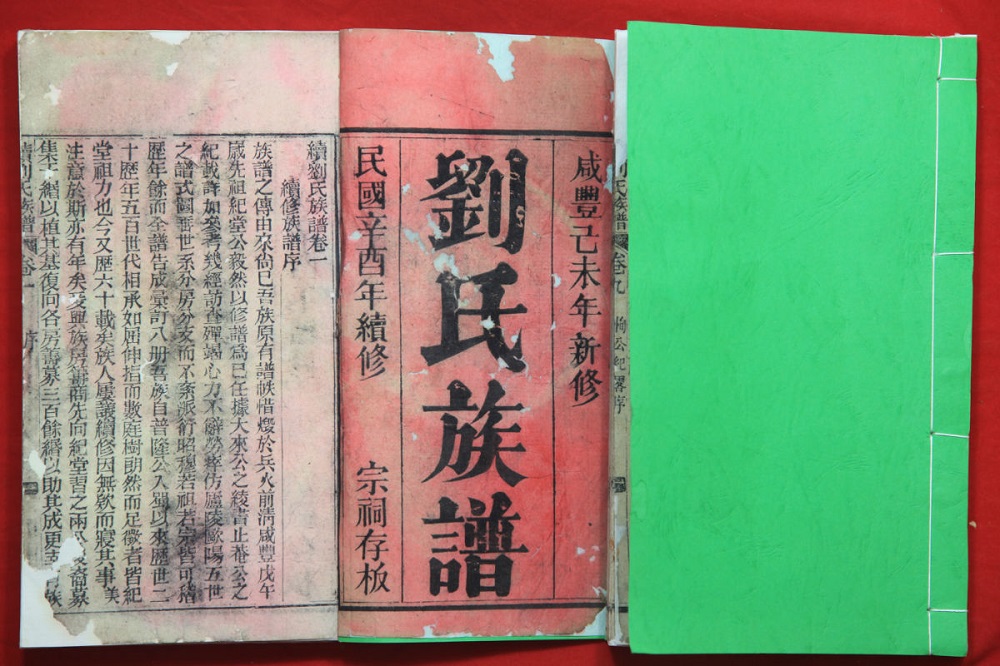 劉氏族譜
卷九
公記畧序
咸豐己未年新修
劉氏族譜
民國辛酉年續修
宗祠存板
續劉氏族譜卷一
續修族譜序
族譜之傳由來尚已吾族原有譜帙惜燬於兵火前淸咸豐戊午
歲先祖紀堂公毅然以修譜爲已任據大來公之綾書止菴公之
紀載詳加參考幾經訪查殫竭心力不辭勞瘁仿廬陵歐陽五世
之譜式圖垂世系分房分支而不紊派衍昭穆若祖若宗皆可稽
歷年餘而全譜告成彙訂八册吾族自普隆公入蜀以來歷世二
十歷年五百世代相承如屈伸指而數庭樹朗然而足徵者皆紀
堂祖力也今又歷六十載矣族人屢議續修因無欵而寢其事美
注意於斯亦有年矣爰與族房籌商先向紀堂習之兩公後裔募
集千緡以植其基復向各房善募三百餘緡以助其成更族
續劉氏族譜
卷一
序